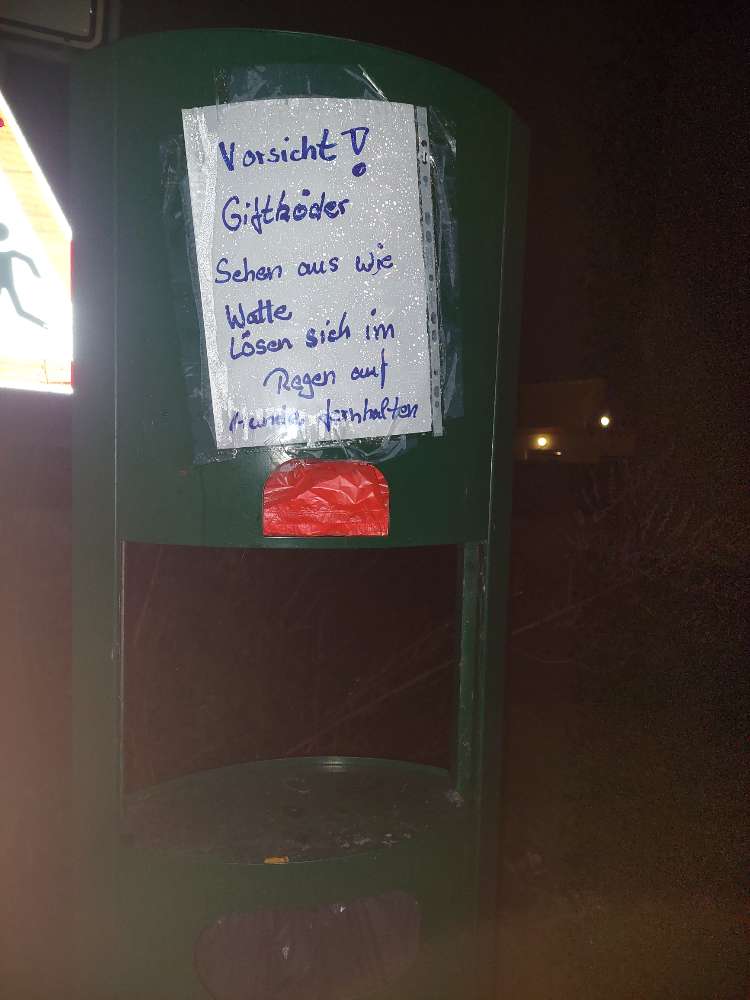 Vorsicht!
Giftköder
Sehen aus wie
Watte
Lösen sich im
Regen auf
Hunde fernhalten